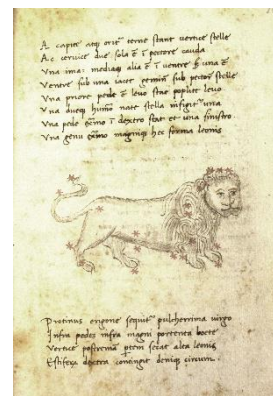 A capite atq; oriē terne stant vertice stelle
Ac cervice due sola ē ī pectore cauda
Vna ima: mediaq; alia ē ī ventre & una ē
Ventre sub una iacet gemin sub pectore stelle
Vna priore pede ē levo stat poplite levo
Vna duoq; humo nate stella infigit una
Vna pede ī dextro stat et una sinistro
Vna genu magniq; hec forma leonis
Protinus erigone sequit pulcherrima virgo
Infra pedes infra magni portenta boete
Vertice postremā ptem secat alta leonis
Estifera dextra contingit deniq; circum.